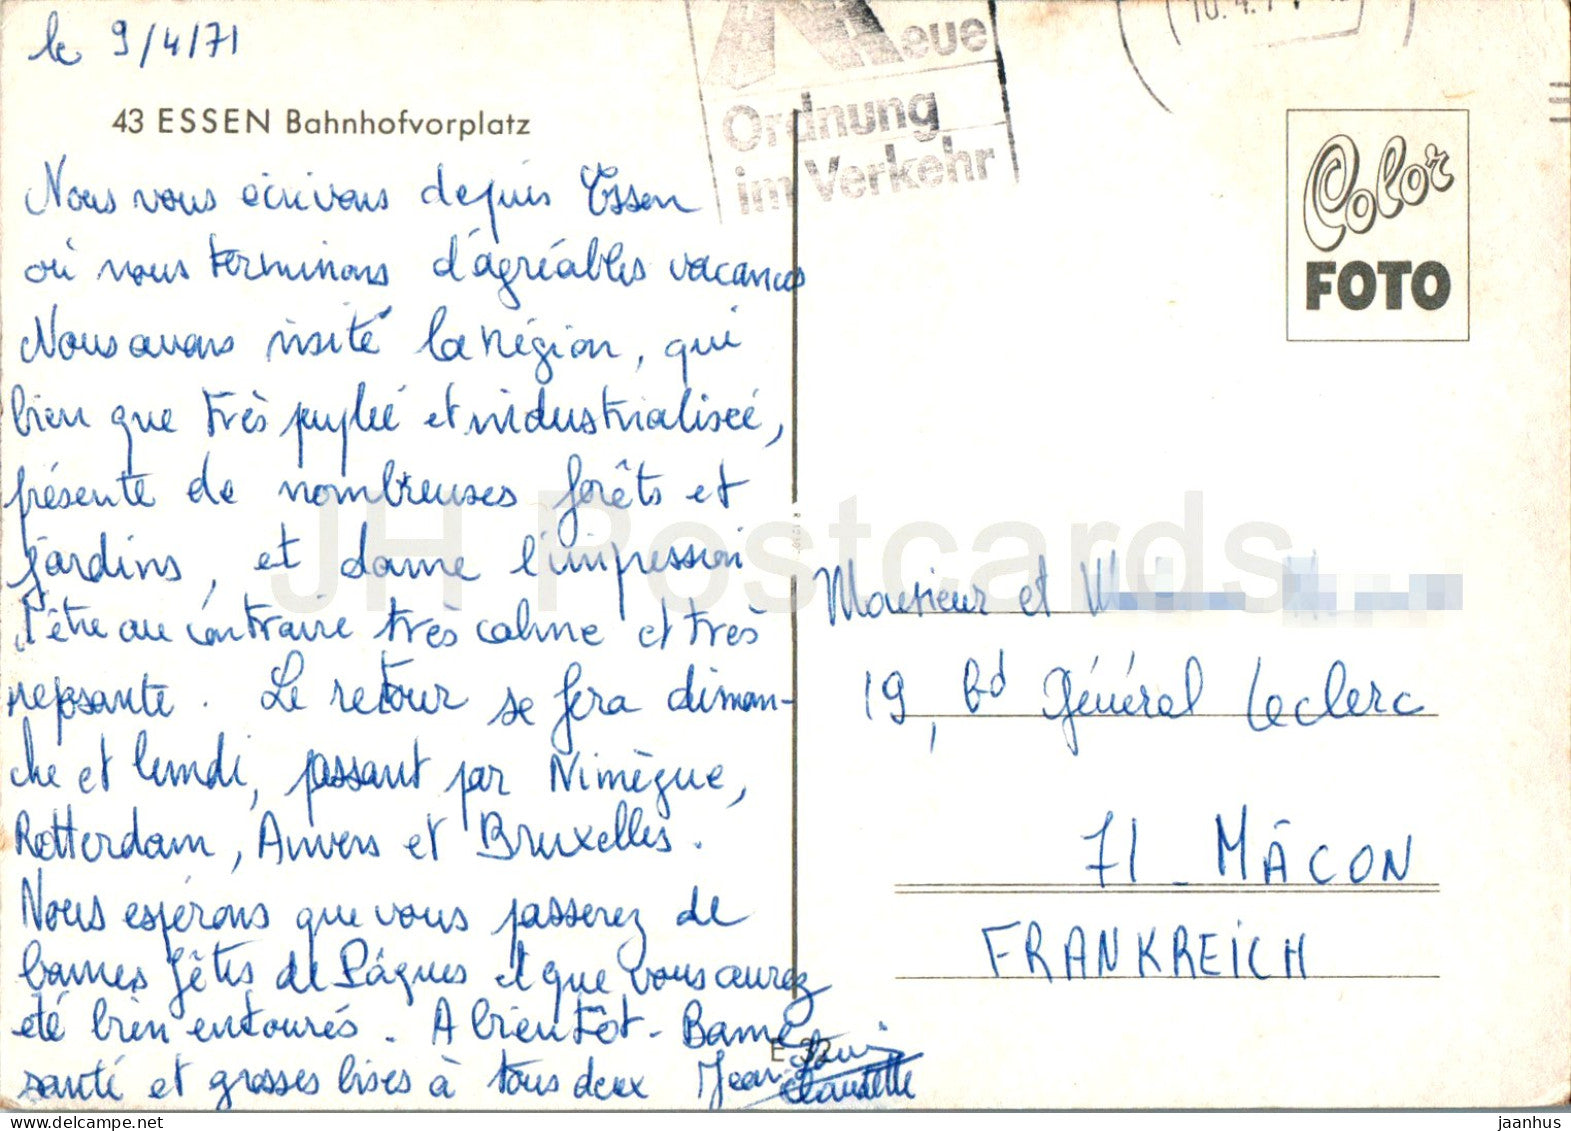 le 9/4/71
43 ESSEN Bahnhofvorplatz
Nous vous écrivons depuis Essen
où nous terminons d'agréables vacances
Nous avons visité la région, qui
bien que très peuplée et industrialisée,
présente de nombreuses forêts et
jardins, et donne l'impression
d'être au contraire très calme et très
reposante. Le retour se fera diman-
che et lundi, passant par Nimègue,
Rotterdam, Anvers et Bruxelles.
Nous espérons que vous passerez de
bonnes fêtes de Pâques et que vous aurez
été bien entourés. A bientôt - Bonne
santé et grosses bises à tous deux
Jean-Louis
Claudette
E 32
Neue
Ordnung
im Verkehr
10.4.71
Color
FOTO
Monsieur et M
19, bd Général Leclerc
71 _ MÂCON
FRANKREICH
JH Postcards
jaanhus